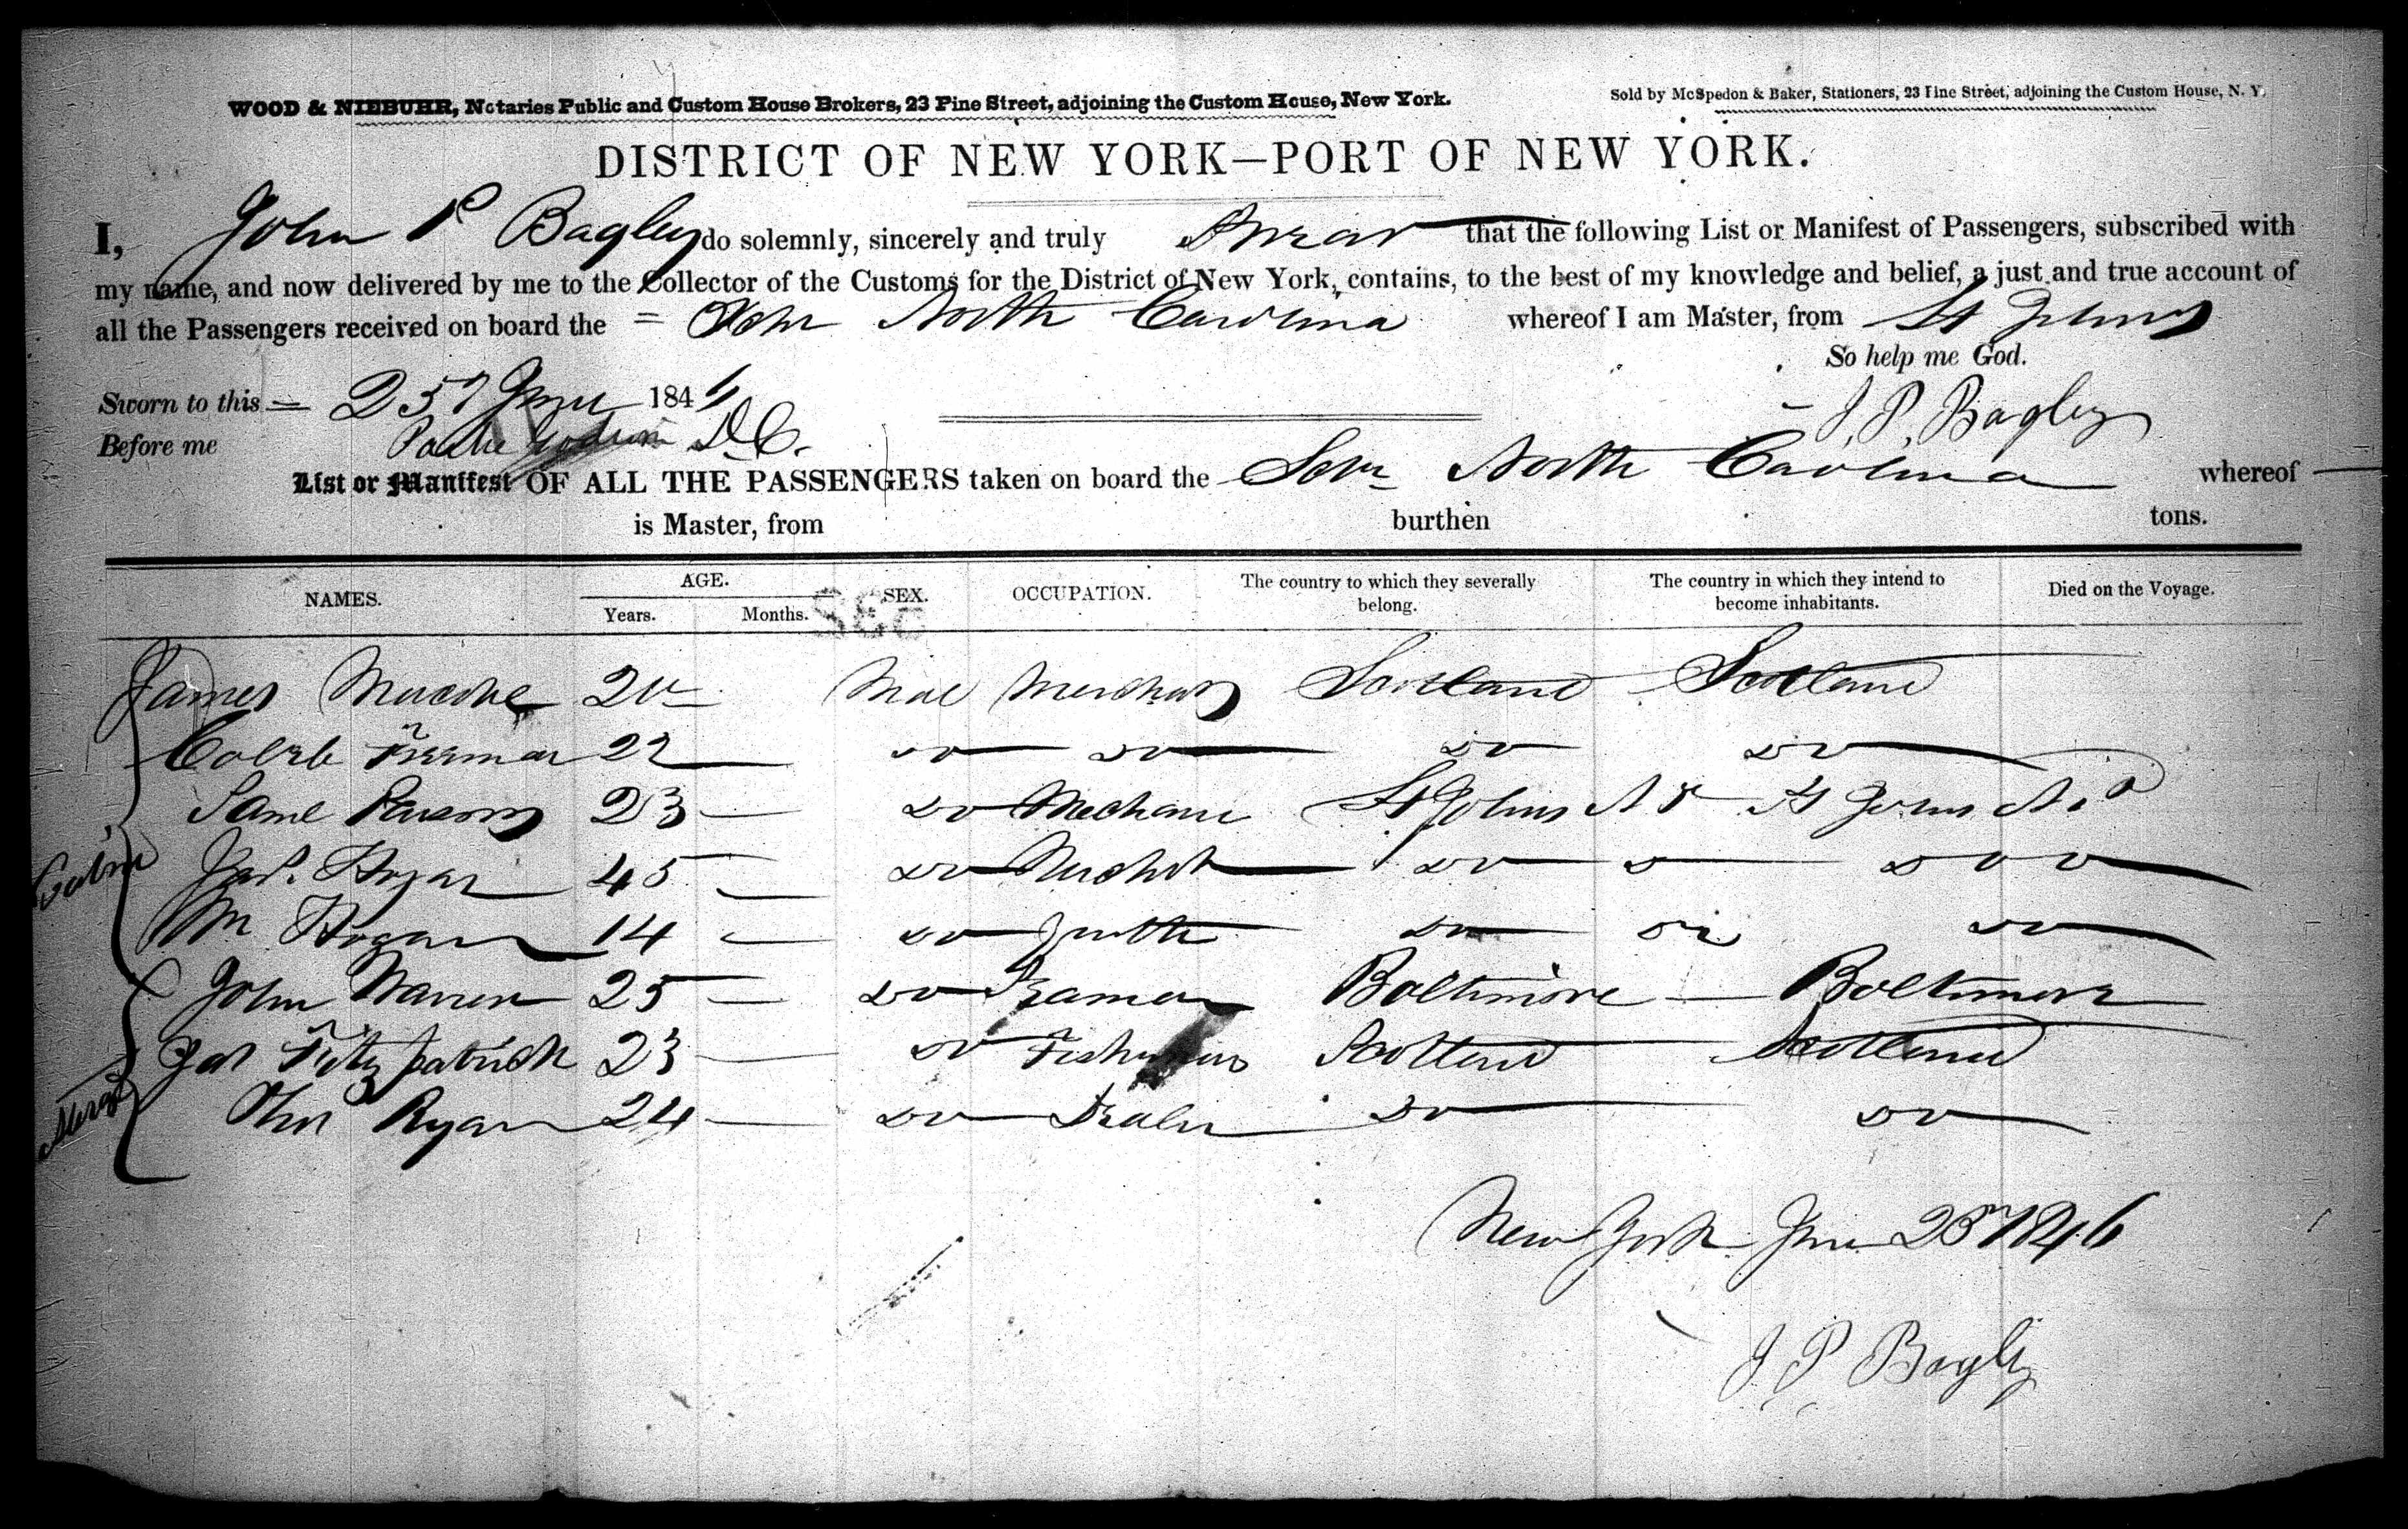 WOOD & NIEBUHR, Notaries Public and Custom House Brokers, 23 Pine Street, adjoining the Custom House, New York.
Sold by McSpedon & Baker, Stationers, 23 Pine Street, adjoining the Custom House, N. Y.
DISTRICT OF NEW YORK—PORT OF NEW YORK.
I, John P Bagley do solemnly, sincerely and truly Swear that the following List or Manifest of Passengers, subscribed with
my name, and now delivered by me to the Collector of the Customs for the District of New York, contains, to the best of my knowledge and belief, a just and true account of
all the Passengers received on board the = Schr North Carolina whereof I am Master, from St Johns
So help me God.
Sworn to this = 25 June 1846
J. P. Bagley
Before me D.C.
List or Manifest OF ALL THE PASSENGERS taken on board the Schr North Carolina whereof
is Master, from burthen tons.
NAMES. AGE. Years. Months. SEX. OCCUPATION. The country to which they severally belong. The country in which they intend to become inhabitants. Died on the Voyage.
James 20 Male Merchant Scotland Scotland
Caleb Freeman 22 do do do do
Saml Parsons 23 do Mechanic St Johns N F St Johns N F
Jas. Hogan 45 do Mercht do do do
Wm Hogan 14 do do do do
Cabin
John Warren 25 do Seaman Baltimore Baltimore
Jas Fitzpatrick 23 do Fisherman Scotland Scotland
Thos Ryan 24 do Sealer do do
Steerage
New York June 25 1846
J P Bagley